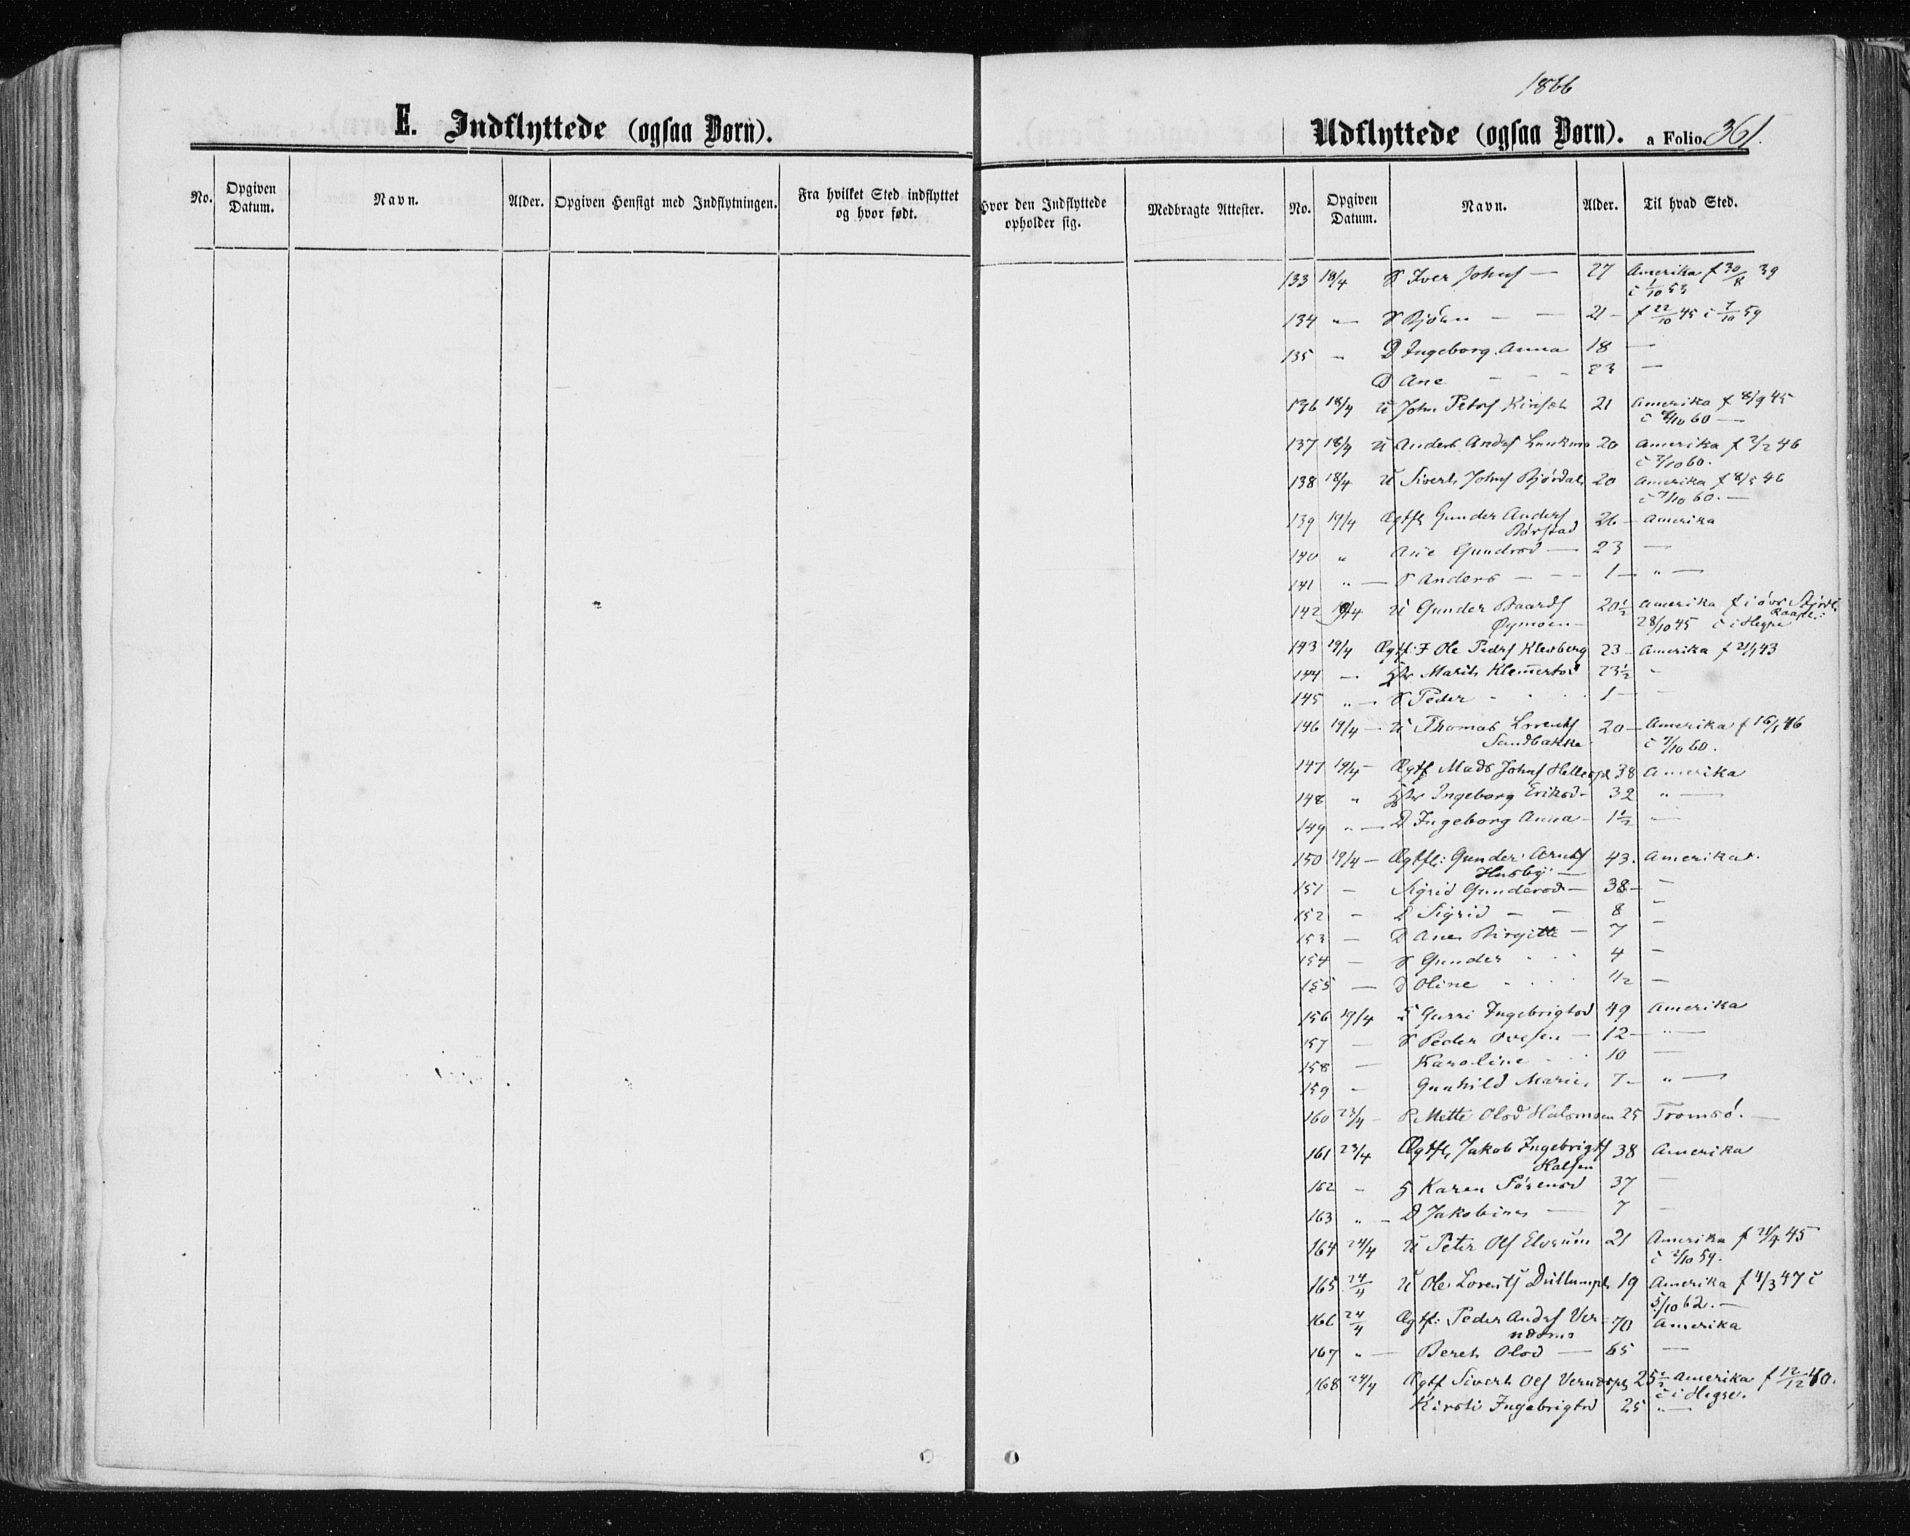 1866
E. Indflyttede (ogsaa Børn).
Udflyttede (ogsaa Børn). a Folio. 361.
No. Opgiven Datum. Navn. Alder. Opgiven Hensigt med Indflytningen. Fra hvilket Sted indflyttet og hvor født. Hvor den Indflyttede opholder sig. Medbragte Attester. No. Opgiven Datum. Navn. Alder. Til hvad Sted.
133 18/4 S Iver Johns — 27 Amerika f 30/8 39
c 1/10 53
134 " — S Bjørn — — 21 — f 22/10 45 c 7/10 59
135 " D Ingeborg Anna 18 —
D Ane - - - 23 —
136 18/4 U John Peters 21 Amerika f 8/9 45
c 7/10 60 —
137 18/4 U Anders Anders 20 Amerika f 3/2 46
c 7/10 60.
138 18/4 U Sivert Johns Bjørdal 20 Amerika f 8/5 46
c 7/10 60. —
139 19/4 Ægtf Gunder Anders 26 — Amerika
Børstad
140 " Ane Gundersd — 23 —
141 " — S Anders — — — 1 — " —
142 19/4 U Gunder Baards 20½ Amerika f i øvr Stjørd
Øymoen — 28/10 45 c i Hegre
143 19/4 Ægtf. F Ole Peders Klevberg 23 — Amerika f 21/1 43
144 — Marit Klemetsd 23½ "
145 " — S Peder - - - 1 —
146 19/4 — U Thomas Lorents 20 — Amerika f 16/1 46
Sandbakke c 7/10 60.
147 19/4 — Ægtf Mads Johns 38 Amerika
148 " Ingeborg Eriksd — 32 " —
149 " — D Ingeborg Anna — 1½ " —
150 19/4 — Ægtfl: Gunder Arnts 43. Amerika.
Husby —
151 — Sigrid Gundersd — 38 — —
152 — D Sigrid — — 8 —
153 — D Ane Birgitte — 7 —
154 — S Gunder - - - 4 —
155 — D Oline - - - 1/2 —
156 19/4 Gurri Ingebrigtsd 49 Amerika
157 — S Peder — 12 — " —
158 — Karoline - - - 10 —
159 — Gunhild Marie 7 — " —
160 23/4 — P. Mette Olsd Halsmoen 25 Tromsø. —
161 23/4 Ægtfl Jakob Ingebrigts 38 Amerika
Halsen
162 " Karen Sørensd 37 —
163 " — D Jakobine — 7 —
164 24/4 U Peter Ols Elvrum 21 Amerika f 21/4 45
c 2/10 59.
165 24/4 U Ole Lorents 19 Amerika f 4/3 47 c
5/10 62. —
166 24/4 Ægtf: Peder Anders Ver 70 Amerika
næsms
167 " — Beret Olsd — 65 —
168 24/4 Ægtf Sivert Ols 25½ Amerika f 12/12 40.
c i Hegre.
Kirsti Ingebrigtsd 25 " —